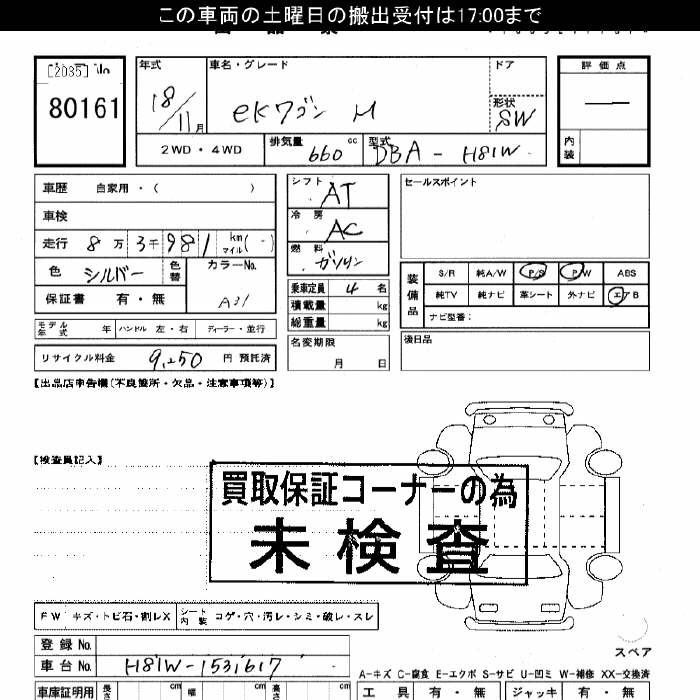 この車両の土曜日の搬出受付は17:00まで
[2035] No
80161
年式 18/11月
車名・グレード ekワゴン M
ドア
形状 SW
2WD・4WD
排気量 660 cc
型式 DBA-H81W
評価点
内装
車歴 自家用・( )
車検
走行 8万3千981 km マイル(-)
色 シルバー 色替
カラーNo. A31
保証書 有・無
シフト AT
冷房 AC
燃料 ガソリン
乗車定員 4名
積載量 kg
総重量 kg
名変期限
月 日
セールスポイント
装備品
S/R 純A/W P/S P/W ABS
純TV 純ナビ 革シート 外ナビ エアB
ナビ型番:
後日品
モデル年式 年 ハンドル 左・右 ディーラー・並行
リサイクル料金 9,250 円 預託済
【出品店申告欄(不良箇所・欠品・注意事項等)】
【検査員記入】
買取保証コーナーの為
未検査
FW キズ・トビ石・割レX
シート内装 コゲ・穴・汚レ・シミ・破レ・スレ
登録No.
車台No. H81W-1531617
スペア
A-キズ C-腐食 E-エクボ S-サビ U-凹ミ W-補修 XX-交換済
車庫証明用 長さ cm 幅 cm 高さ cm
工具 有・無 ジャッキ 有・無